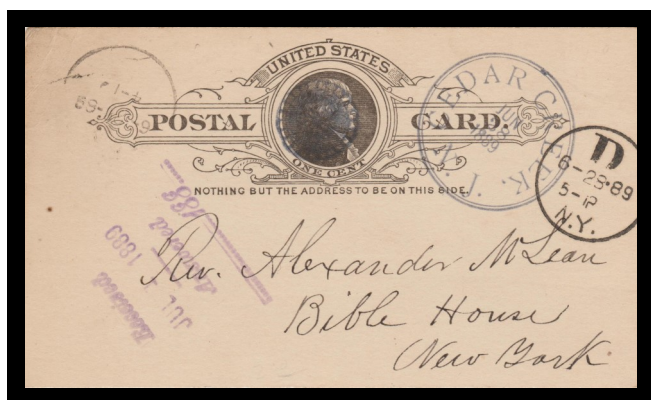 UNITED STATES
POSTAL CARD.
ONE CENT
NOTHING BUT THE ADDRESS TO BE ON THIS SIDE.
CEDAR CREEK.
JUN
1889
D
6-28-89
5-P
N.Y.
Received
JUL 1889
Answered
Rev. Alexander McLean
Bible House
New York